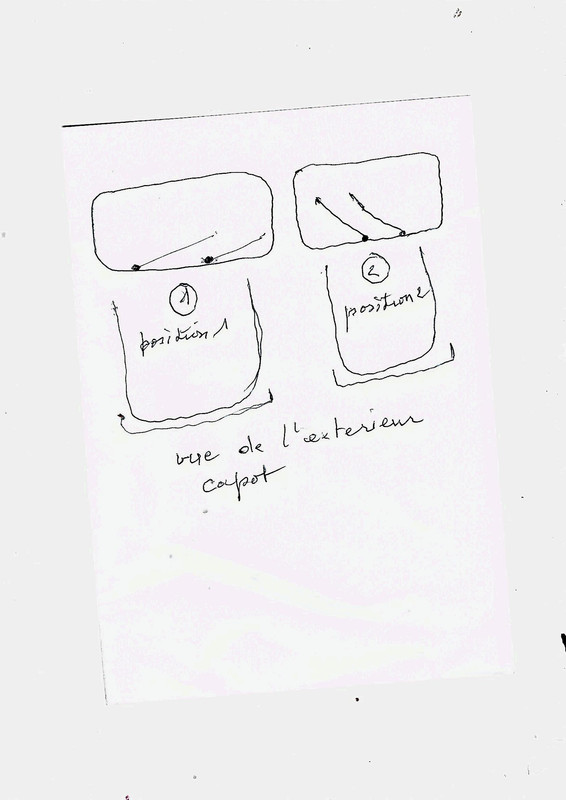 1
position 1
2
position 2
vue de l'exterieur
capot